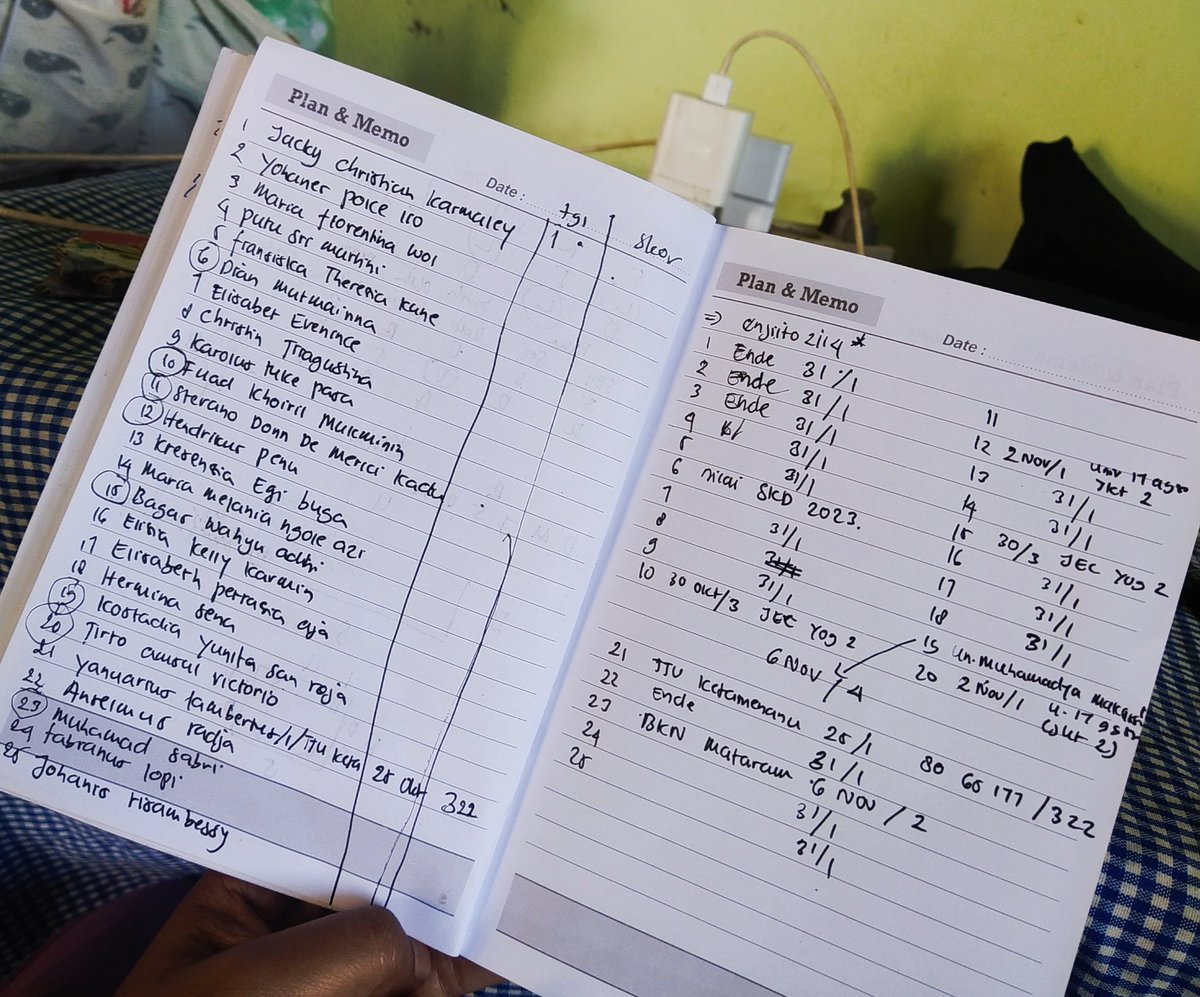 Plan & Memo
Date :
tgl
Skor
1 Jacky Christian Karmaley
2 Yohaner poice
3 Maria florentina woi
4 putu sri murtini
5 fransiska Theresia kune
6 Dian mutmainna
7 Elisabet Evenince
8 Christin Tragustina
9 karolus tuke para
10 Fuad khoiril Mukminin
11 Stefano Donn De Merici kadju
12 Hendrikus penu
13 kresensia Egi buga
14 Maria melania ngole azi
15 Bagas wahyu adhi
16 Elisia kelly karmin
17 Elisabeth
18 Hermina sena
19 kostadia Yunita san roja
20 Tirto amsal victorio
21 Yanuarius lambertus/1/TTU kefa 25 Okt 322
22 Anselmus radja
23 muhamad sabri
24 fabianus lopi
25 Johanis risambessy
Plan & Memo
Date :
=> 2114 *
1 Ende 31/1
2 Ende 31/1
3 Ende 31/1
4 31/1
5 31/1
6 nilai SKD 2023.
7 31/1
8
9 31/1
10 30 okt/3 JEC Yog 2
6 Nov / 4
11
12 2 Nov/1 univ 17 agu Jkt 2
13 31/1
14 31/1
15 30/3 JEC Yog 2
16 31/1
17 31/1
18 31/1
Un. Muhamadya
20 2 Nov/1 u. 17 (Jkt 2)
21 TTU 25/1 80 65 177 / 322
22 Ende 31/1
23 BKN Mataram 6 Nov / 2
24 31/1
25 31/1